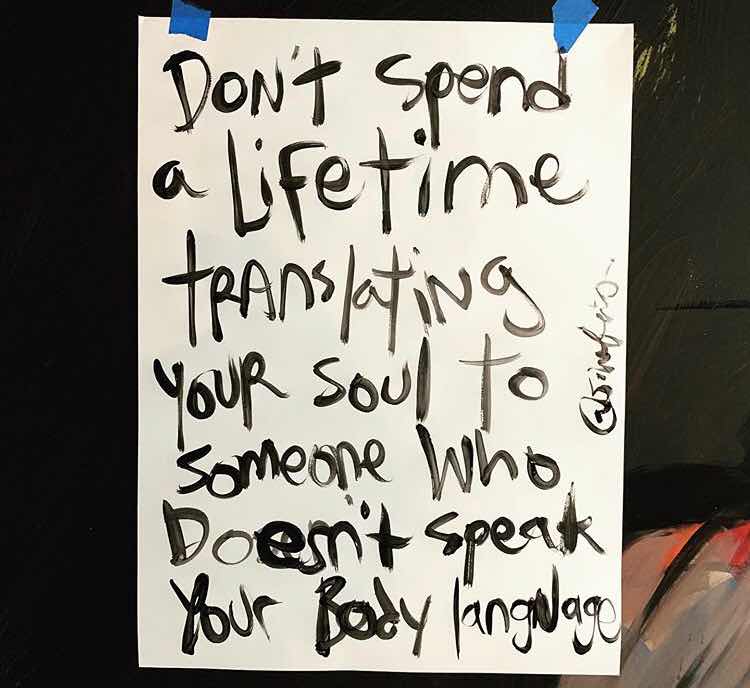 Don't spend
a Lifetime
translating
your soul to
someone who
Doesn't speak
Your Body language